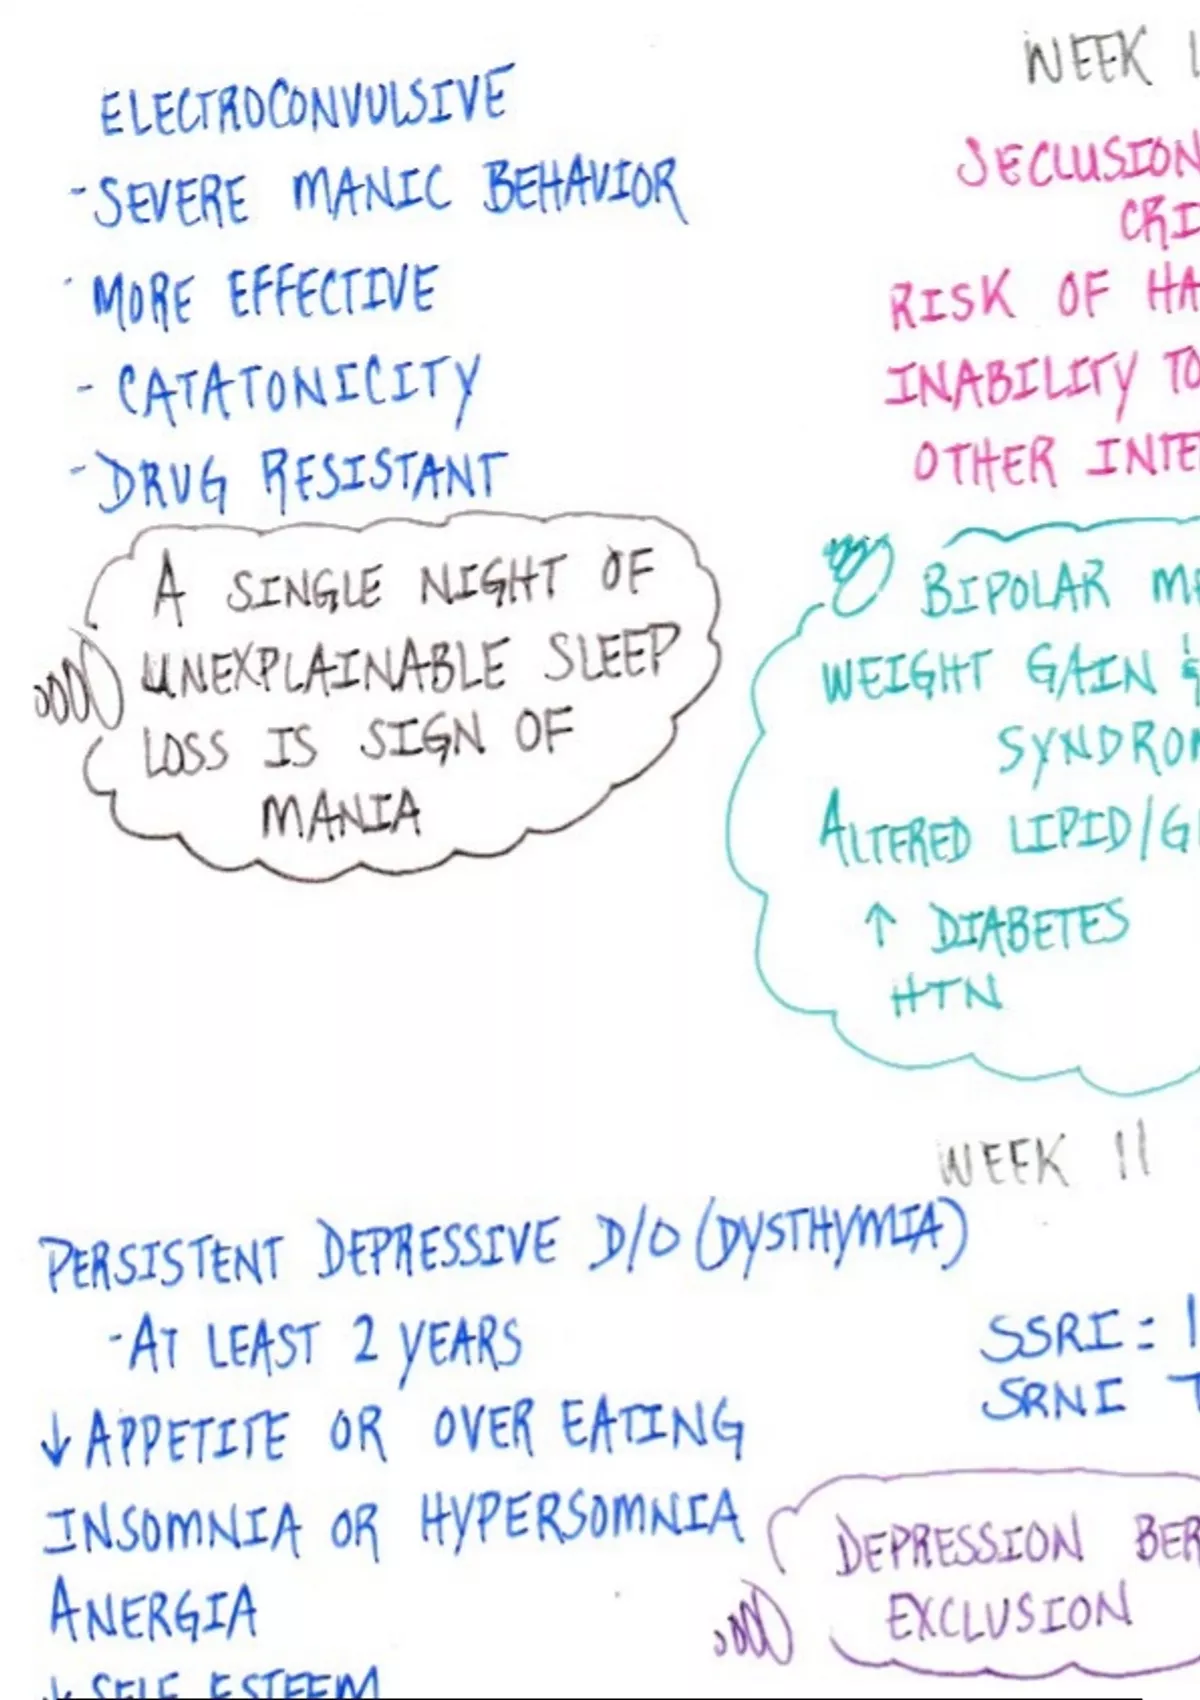 ELECTROCONVULSIVE
- SEVERE MANIC BEHAVIOR
- MORE EFFECTIVE
- CATATONICITY
- DRUG RESISTANT
A SINGLE NIGHT OF
UNEXPLAINABLE SLEEP
LOSS IS SIGN OF
MANIA
WEEK
SECLUSION
RISK OF
INABILITY TO
OTHER
BIPOLAR
WEIGHT GAIN &
ALTERED LIPID/
↑ DIABETES
HTN
WEEK 11
PERSISTENT DEPRESSIVE D/O (DYSTHYMIA)
- AT LEAST 2 YEARS
↓ APPETITE OR OVER EATING
INSOMNIA OR HYPERSOMNIA
ANERGIA
↓ SELF ESTEEM
SSRI =
SRNI
DEPRESSION
EXCLUSION